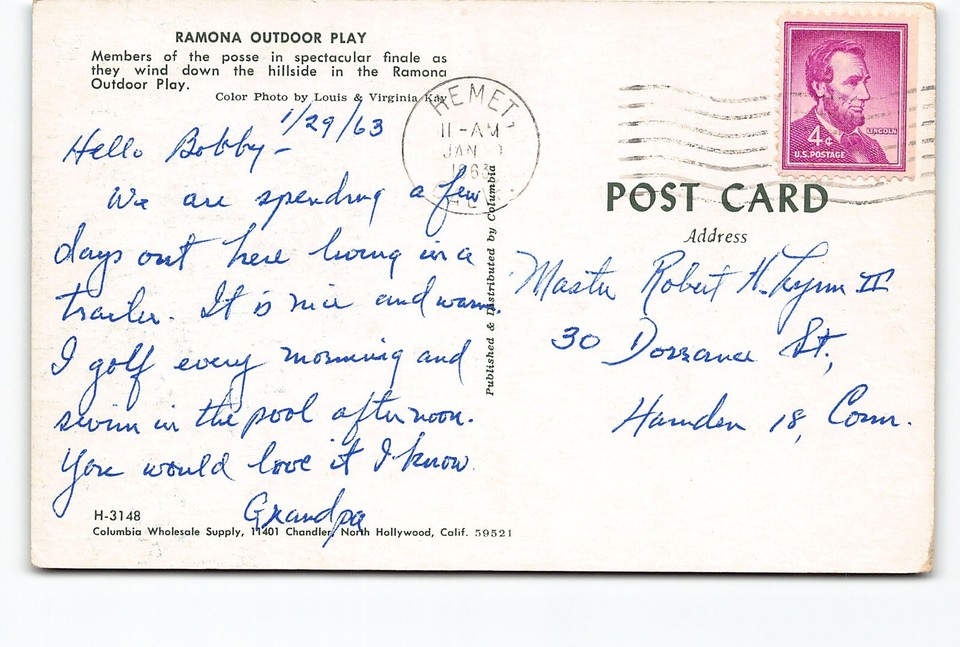 RAMONA OUTDOOR PLAY
Members of the posse in spectacular finale as
they wind down the hillside in the Ramona
Outdoor Play.
Color Photo by Louis & Virginia Kay
1/29/63
Hello Bobby –
We are spending a few
days out here living in a
trailer. It is nice and warm.
I golf every morning and
swim in the pool afternoon.
You would love it I know.
Grandpa
H-3148
Columbia Wholesale Supply, 11401 Chandler, North Hollywood, Calif. 59521
Published & Distributed by Columbia
HEMET,
11-AM
JAN
1963
4¢
LINCOLN
U.S. POSTAGE
POST CARD
Address
Master Robert H. Lynn II
30 Dorrance St.,
Hamden 18, Conn.